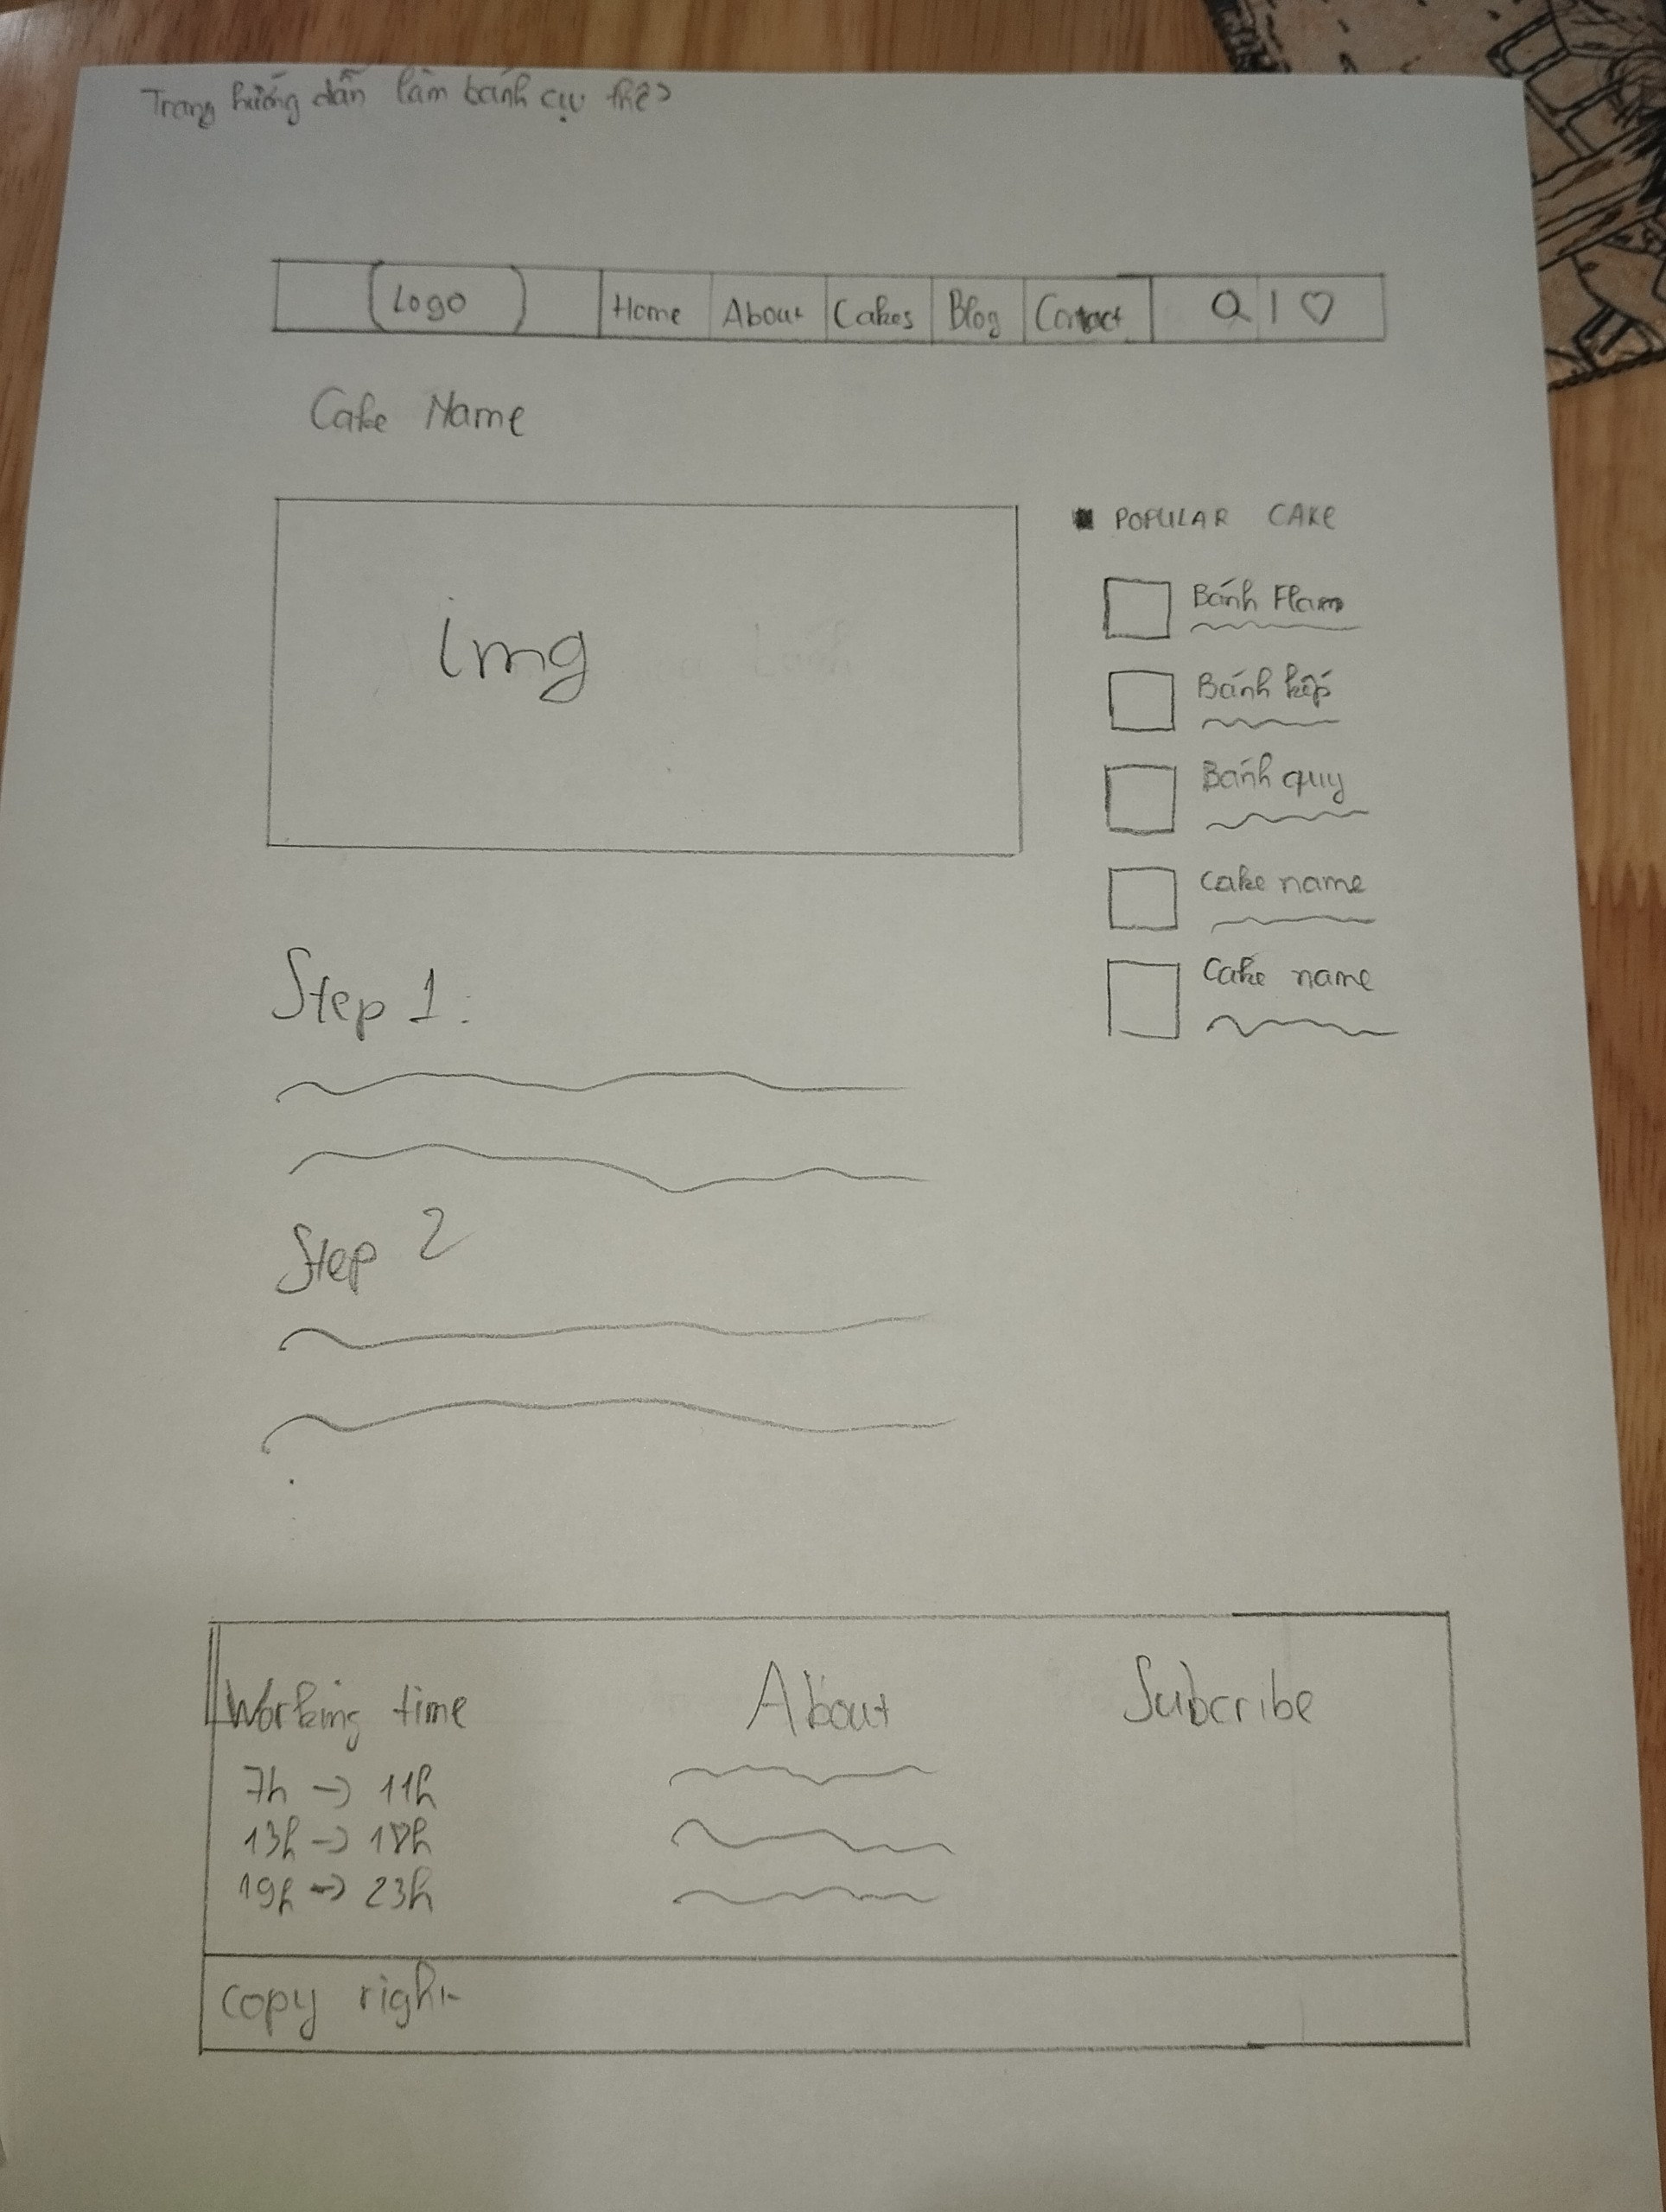 Trang hướng dẫn làm bánh cụ thể
Logo Home About Cakes Blog Contact
Cake Name
img
POPULAR CAKE
Bánh Flam
Bánh kếp
Bánh quy
Cake name
Cake name
Step 1:
Step 2
Working time
7h → 11h
13h → 18h
19h → 23h
About
Subcribe
copy right